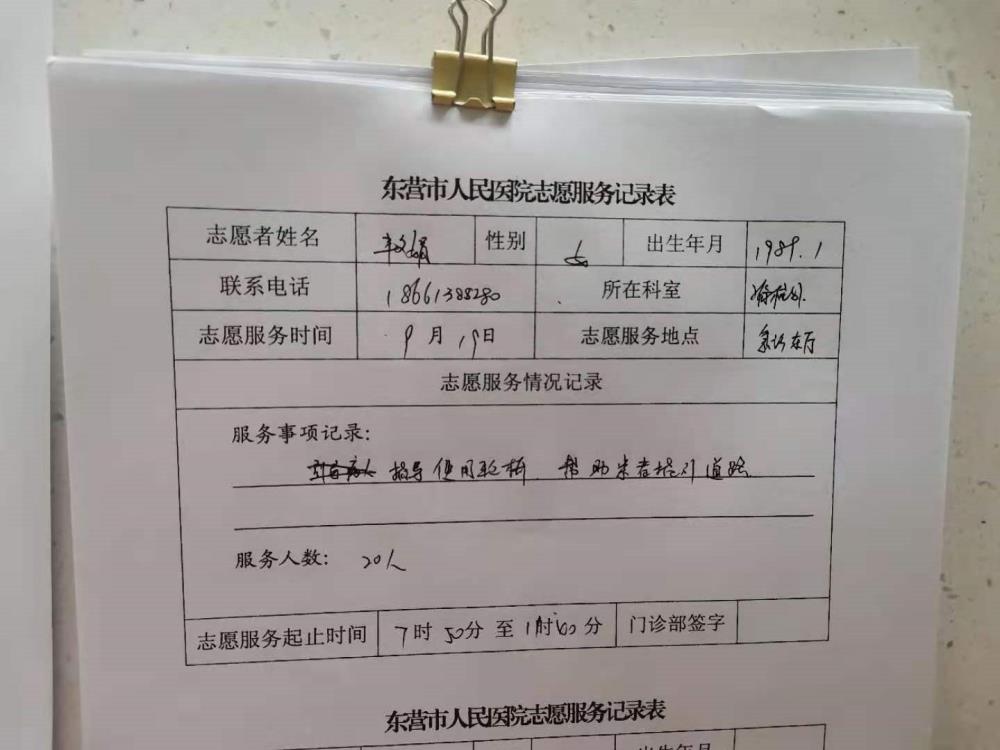 东营市人民医院志愿服务记录表
志愿者姓名 性别 女 出生年月 1989.1
联系电话 18661388280 所在科室
志愿服务时间 9月19日 志愿服务地点 急诊大厅
志愿服务情况记录
服务事项记录:
指导使用轮椅 帮助患者指引道路
服务人数: 20人
志愿服务起止时间 7时50分至1时60分 门诊部签字
东营市人民医院志愿服务记录表
出生年月